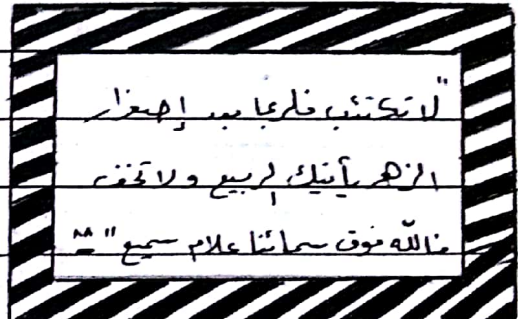 "لا تكتئب فلربما بعد إصفرار
الزهر يأتيك الربيع ولا تخف
فالله فوق سمائنا علام سميع" ^^